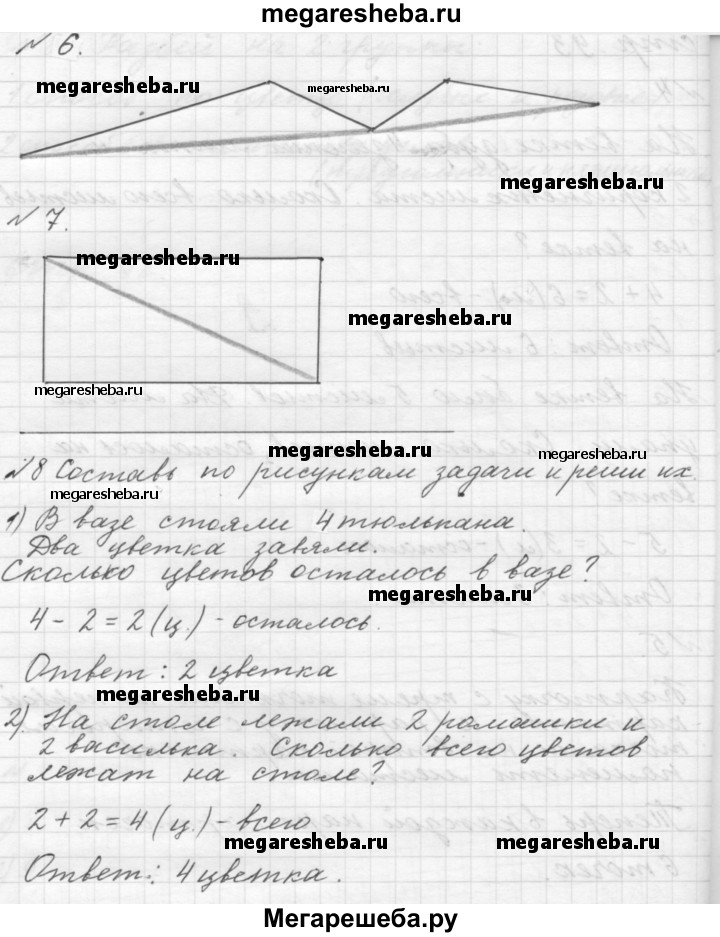 megaresheba.ru
№ 6.
megaresheba.ru
megaresheba.ru
megaresheba.ru
№ 7.
megaresheba.ru
megaresheba.ru
megaresheba.ru
megaresheba.ru
megaresheba.ru
№8 Составь по рисункам задачи и реши их.
megaresheba.ru
1) В вазе стояли 4 тюльпана.
Два цветка завяли.
Сколько цветов осталось в вазе?
megaresheba.ru
4 - 2 = 2 (ц.) - осталось.
Ответ: 2 цветка
megaresheba.ru
2) На столе лежали 2 ромашки и
2 василька. Сколько всего цветов
лежат на столе?
2 + 2 = 4 (ц.) - всего
megaresheba.ru
megaresheba.ru
Ответ: 4 цветка.
Мегарешеба.ру